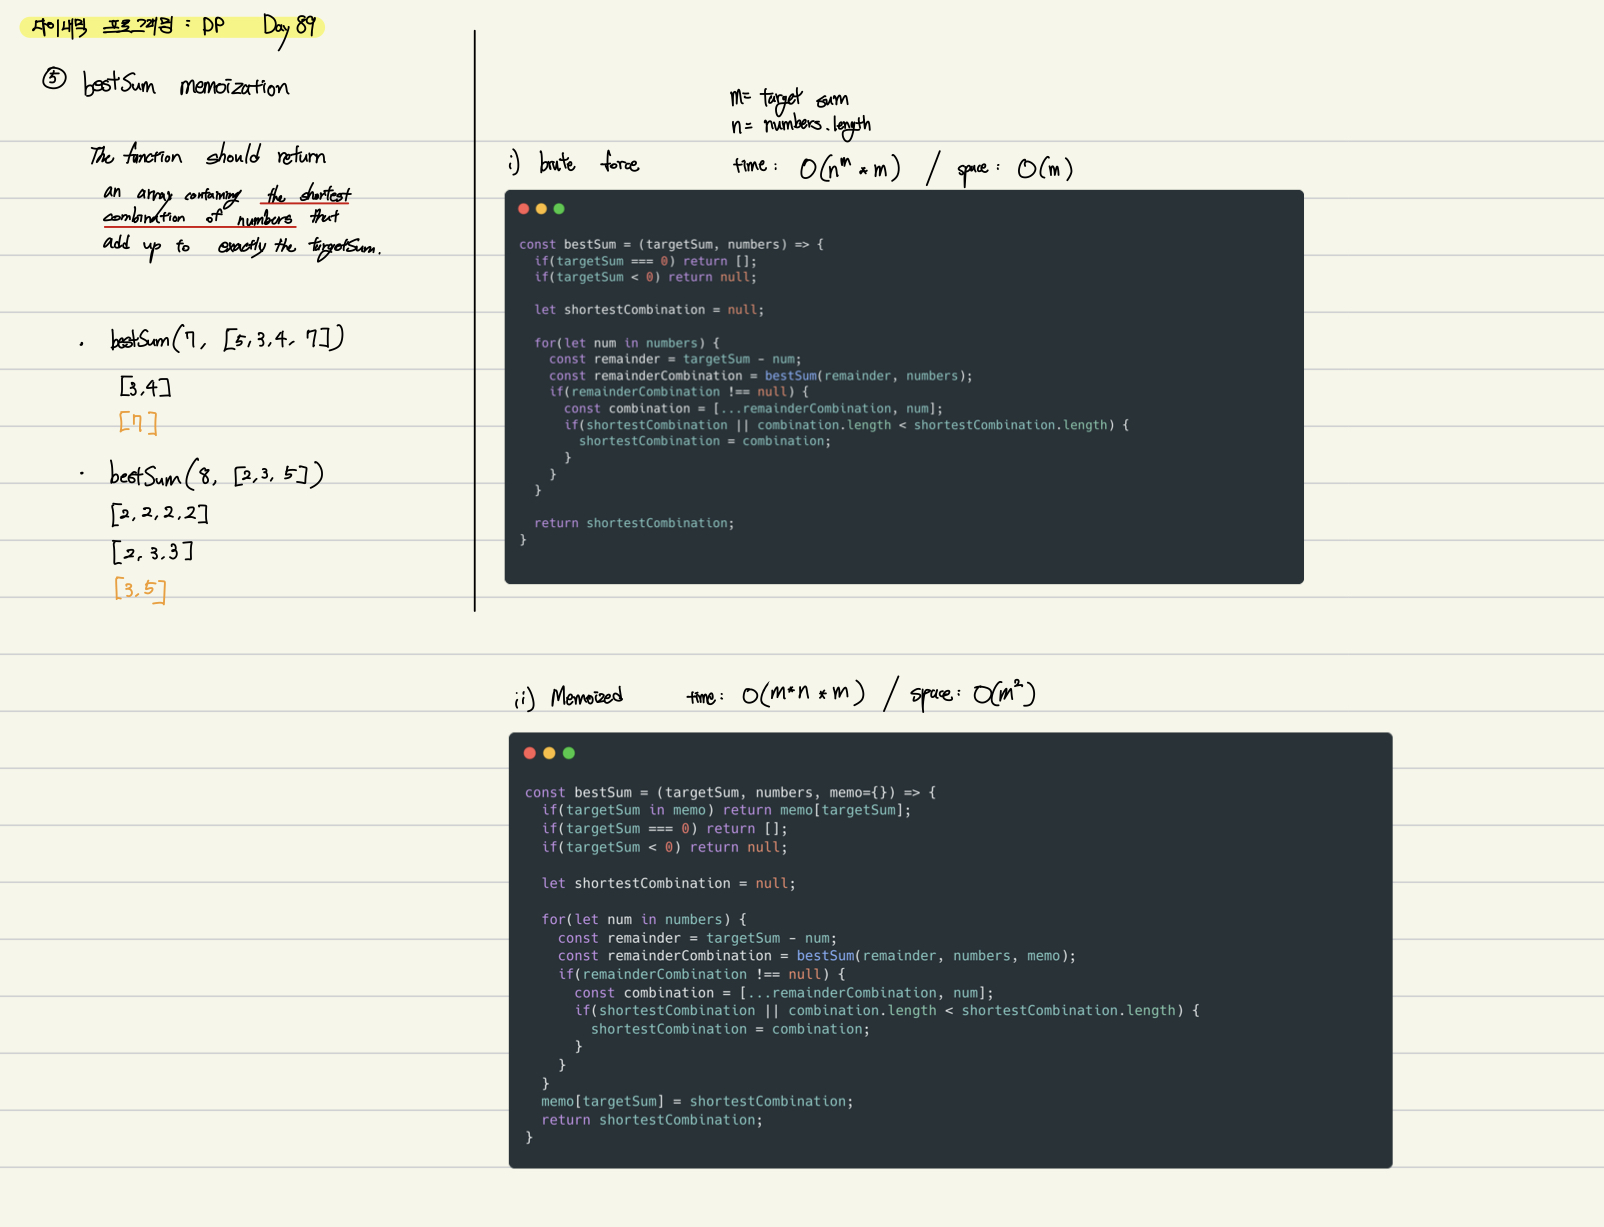 다이내믹 프로그래밍 : DP Day 89
⑤ bestSum memoization
The function should return
an array containing the shortest
combination of numbers that
add up to exactly the targetSum.
· bestSum(7, [5,3,4,7])
[3,4]
[7]
· bestSum(8, [2,3,5])
[2,2,2,2]
[2,3,3]
[3,5]
m= target sum
n= numbers.length
i) brute force time: O(n^m * m) / space: O(m)
const bestSum = (targetSum, numbers) => {
  if(targetSum === 0) return [];
  if(targetSum < 0) return null;
  let shortestCombination = null;
  for(let num in numbers) {
    const remainder = targetSum - num;
    const remainderCombination = bestSum(remainder, numbers);
    if(remainderCombination !== null) {
      const combination = [...remainderCombination, num];
      if(shortestCombination || combination.length < shortestCombination.length) {
        shortestCombination = combination;
      }
    }
  }
  return shortestCombination;
}
ii) Memoized time: O(m*n * m) / space: O(m²)
const bestSum = (targetSum, numbers, memo={}) => {
  if(targetSum in memo) return memo[targetSum];
  if(targetSum === 0) return [];
  if(targetSum < 0) return null;
  let shortestCombination = null;
  for(let num in numbers) {
    const remainder = targetSum - num;
    const remainderCombination = bestSum(remainder, numbers, memo);
    if(remainderCombination !== null) {
      const combination = [...remainderCombination, num];
      if(shortestCombination || combination.length < shortestCombination.length) {
        shortestCombination = combination;
      }
    }
  }
  memo[targetSum] = shortestCombination;
  return shortestCombination;
}